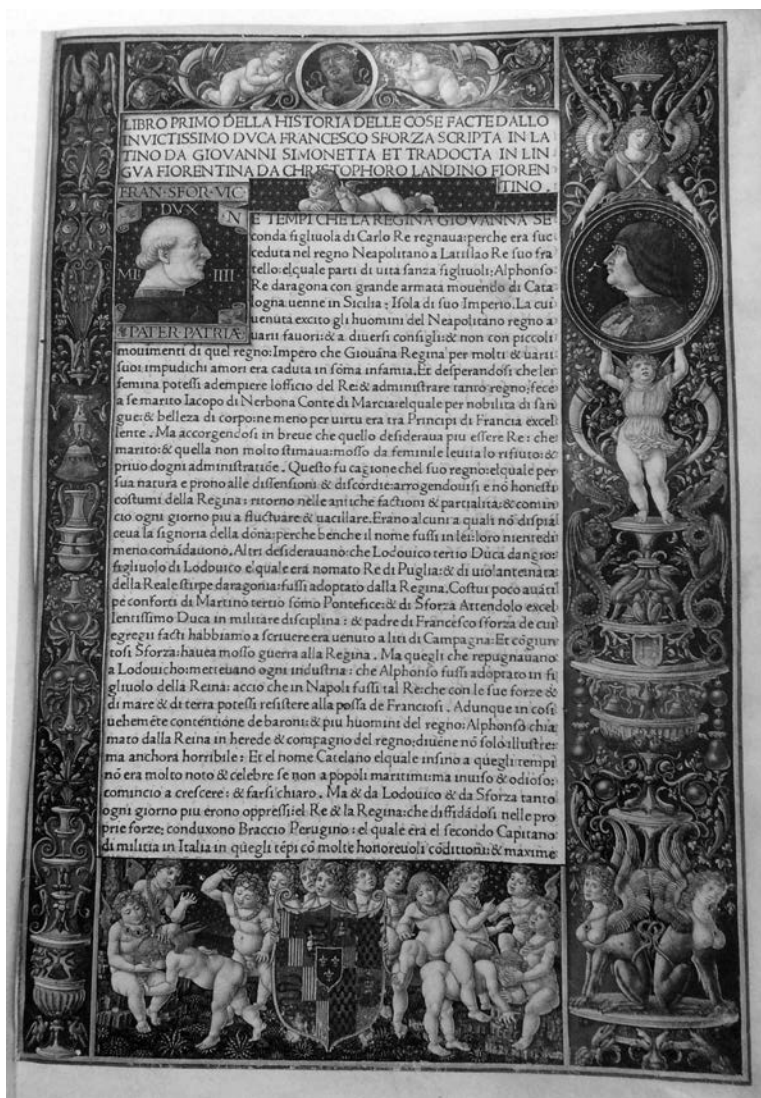 LIBRO PRIMO DELLA HISTORIA DELLE COSE FACTE DALLO
INVICTISSIMO DVCA FRANCESCO SFORZA SCRIPTA IN LA
TINO DA GIOVANNI SIMONETTA ET TRADOCTA IN LIN
GVA FIORENTINA DA CHRISTOPHORO LANDINO FIOREN
TINO.
FRAN·SFOR·VIC
DVX
N
MI
IIII
PATER PATRIÆ
E TEMPI CHE LA REGINA GIOVANNA SE
conda figliuola di Carlo Re regnaua: perche era suc
ceduta nel regno Neapolitano a Latislao Re suo fra
tello: elquale parti di uita sanza figliuoli: Alphonso
Re daragona con grande armata mouendo di Cata
logna uenne in Sicilia: Isola di suo Imperio. La cui
uenuta excito gli huomini del Neapolitano regno a
uarii fauori: & a diuersi consigli: & non con piccoli
mouimenti di quel regno: Impero che Giouāna Regina per molti & uarii
suoi impudichi amori era caduta in sōma infamia. Et desperandosi che lei
femina potessi adempiere lofficio del Re: & administrare tanto regno: fece
a se marito Iacopo di Nerbona Conte di Marcia: elquale per nobilita di san
gue: & belleza di corpo: ne meno per uirtu era tra Principi di Francia excel
lente. Ma accorgendosi in breue che quello desideraua piu essere Re: che
marito: & quella non molto stimaua: mosso da feminile leuita lo rifiuto: &
priuo dogni administratiōe. Questo fu cagione chel suo regno: elquale per
sua natura e prono alle dissensioni & discordie: arrogendouisi e nō honesti
costumi della Regina: ritorno nelle antiche factioni & partialita: & comin
cio ogni giorno piu a fluctuare & uacillare. Erano alcuni a quali nō dispia
ceua la signoria della dōna: perche benche il nome fussi in lei: loro nientedi
meno comādauono. Altri desiderauano: che Lodouico tertio Duca dangio:
figliuolo di Lodouico elquale era nomato Re di Puglia: & di uiolante nata
della Reale stirpe daragonia: fussi adoptato dalla Regina. Costui poco auāti
pe conforti di Martino tertio sōmo Pontefice: & di Sforza Attendolo excel
lentissimo Duca in militare disciplina: & padre di Francesco sforza de cui
egregii facti habbiamo a scriuere era uenuto a liti di Campagna: Et cōgiun
tosi Sforza: hauea mosso guerra alla Regina. Ma quegli che repugnauano
a Lodouicho: metteuano ogni industria: che Alphonso fussi adoptato in fi
gliuolo della Reina: accio che in Napoli fussi tal Re: che con le sue forze &
di mare & di terra potessi resistere alla possa de Franciosi. Adunque in cosi
uehemēte contentione de baroni: & piu huomini del regno: Alphonso chia
mato dalla Reina in herede & compagno del regno: diuēne nō solo illustre:
ma anchora horribile: Et el nome Catelano elquale insino a quegli tempi
nō era molto noto & celebre se non a popoli maritimi: ma inuiso & odioso:
comincio a crescere: & farsi chiaro. Ma & da Lodouico & da Sforza tanto
ogni giorno piu erono oppressi: el Re & la Regina: che diffidādosi nelle pro
prie forze: conduxono Braccio Perugino: el quale era el secondo Capitano
di militia in Italia in quegli tēpi cō molte honoreuoli cōditioni: & maxime